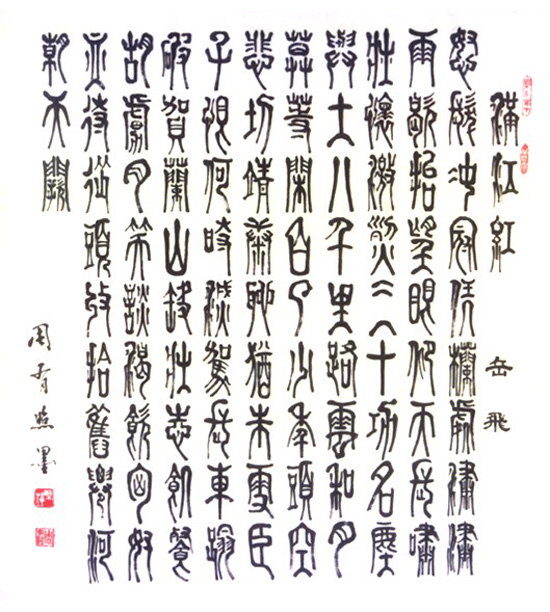 滿江紅 岳飛
怒髮沖冠凭欄處瀟瀟
雨歇抬望眼仰天長嘯
壯懷激烈三十功名塵
與土八千里路雲和月
莫等閑白了少年頭空
悲切靖康恥猶未雪臣
子恨何時滅駕長車踏
破賀蘭山缺壯志飢餐
胡虜肉笑談渴飲匈奴
血待從頭收拾舊河
朝天闕
周墨